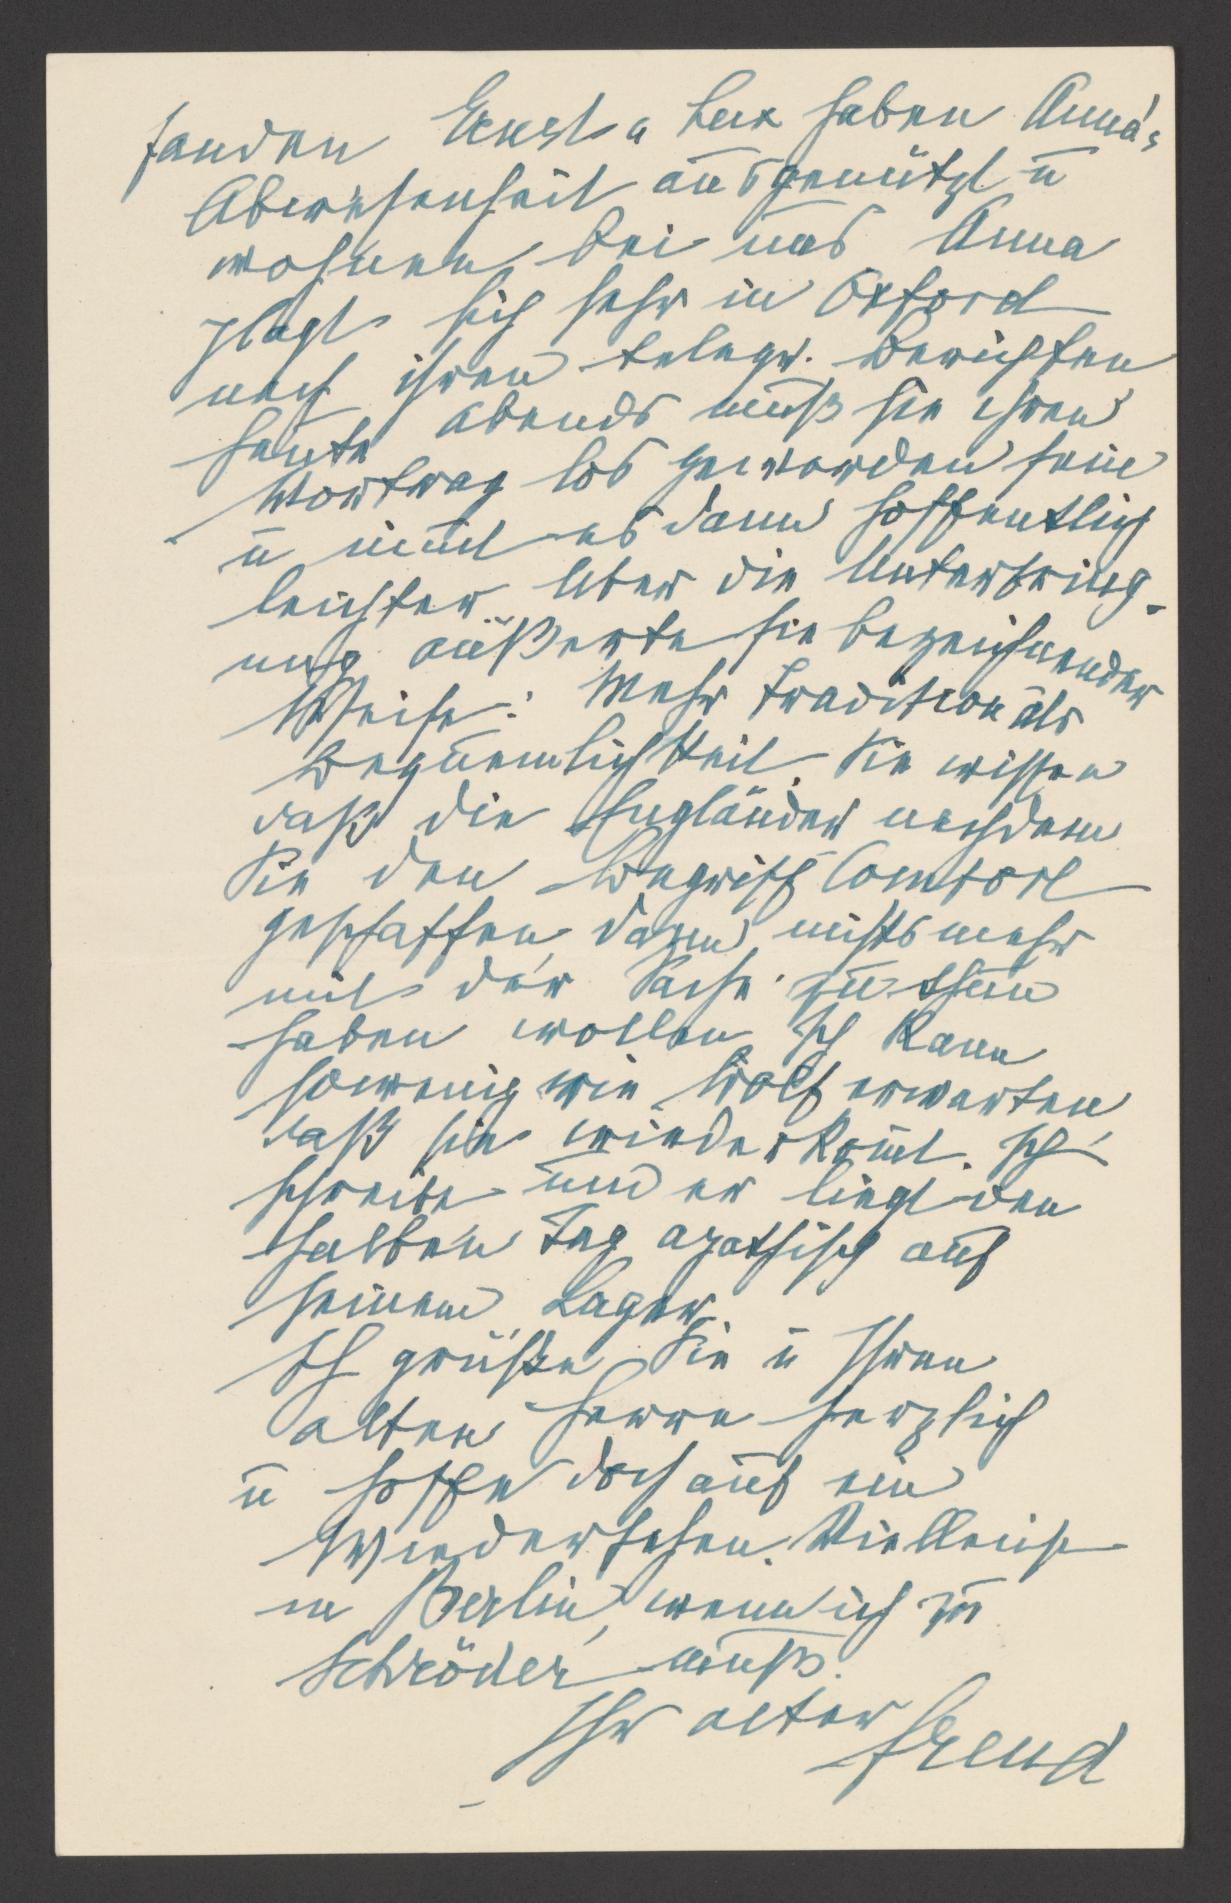 fanden. Ernst u Lux haben Anna's
Abwesenheit ausgenützt u
wohnen bei uns. Anna
plagt sich sehr in Oxford
nach ihren telegr. Berichten
heute abends muß sie ihren
Vortrag los geworden sein
u nim̄t es dann hoffentlich
leichter. Über die Unterbring-
ung äußerte sie bezeichnender
Weise: Mehr Tradition als
Bequemlichkeit. Sie wissen
daß die Engländer nachdem
Sie den Begriff Comfort
geschaffen, dann nichts mehr
mit der Sache zu thun
haben wollen. Ich kann
sowenig wie Wolf erwarten,
daß sie wiederkom̄t. Ich
schreibe und er liegt den
halben Tag apathisch auf
seinem Lager.
Ich grüße Sie u Ihren
alten Herrn herzlich
u hoffe doch auf ein
Wiedersehen. Vielleicht
in Berlin, wenn ich zu
Schröder muß.
Ihr alter Freud